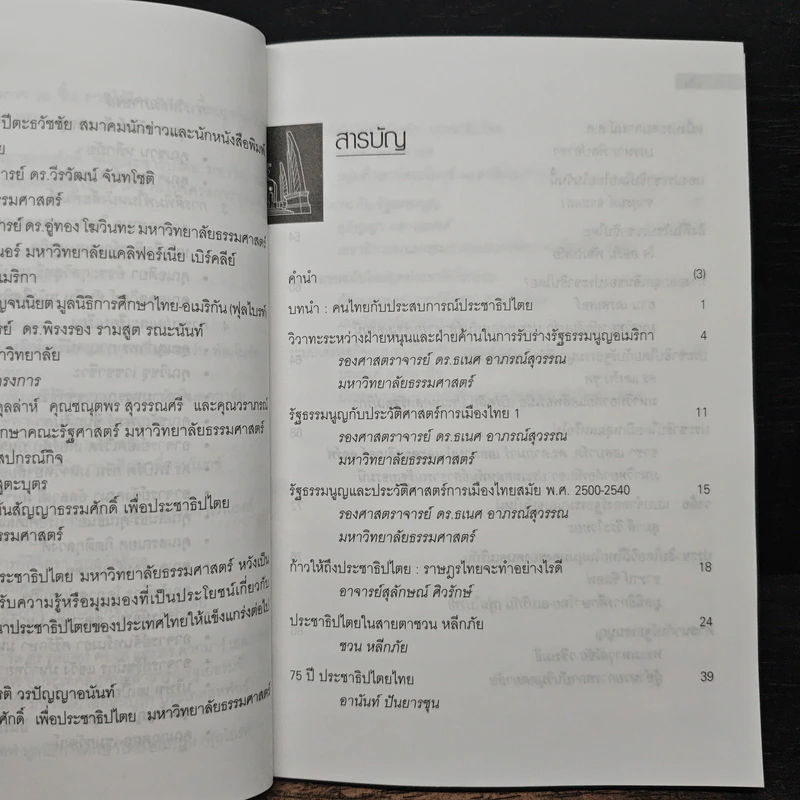 ปีตะธวัชชัย สมาคมนักข่าวและนักหนังสือพิมพ์
ย
ารย์ ดร.วีรวัฒน์ จันทโชติ
รรมศาสตร์
ารย์ ดร.อู่ทอง โฆวินทะ มหาวิทยาลัยธรรมศาสตร์
นอร์ มหาวิทยาลัยแคลิฟอร์เนีย เบิร์คลีย์
เมริกา
ญจนนิยต มูลนิธิการศึกษาไทย-อเมริกัน (ฟุลไบรท์
รย์ ดร.พิรงรอง รามสูต รณะนันท์
าวิทยาลัย
ครงการ
ดุลล่าห์ คุณชณุตพร สุวรรณศรี และคุณวราภรณ์
กษาคณะรัฐศาสตร์ มหาวิทยาลัยธรรมศาสตร์
สปกรณ์กิจ
สูตะบุตร
บันสัญญาธรรมศักดิ์ เพื่อประชาธิปไตย
รรมศาสตร์
ระชาธิปไตย มหาวิทยาลัยธรรมศาสตร์ หวังเป็น
รับความรู้หรือมุมมองที่เป็นประโยชน์เกี่ยวกับ
นาประชาธิปไตยของประเทศไทยให้แข็งแกร่งต่อไป
รติ วรปัญญาอนันท์
ศักดิ์ เพื่อประชาธิปไตย มหาวิทยาลัยธรรมศาสตร์
สารบัญ
คำนำ (3)
บทนำ : คนไทยกับประสบการณ์ประชาธิปไตย 1
วิวาทะระหว่างฝ่ายหนุนและฝ่ายค้านในการรับร่างรัฐธรรมนูญอเมริกา 4
รองศาสตราจารย์ ดร.ธเนศ อาภรณ์สุวรรณ
มหาวิทยาลัยธรรมศาสตร์
รัฐธรรมนูญกับประวัติศาสตร์การเมืองไทย 1 11
รองศาสตราจารย์ ดร.ธเนศ อาภรณ์สุวรรณ
มหาวิทยาลัยธรรมศาสตร์
รัฐธรรมนูญและประวัติศาสตร์การเมืองไทยสมัย พ.ศ. 2500-2540 15
รองศาสตราจารย์ ดร.ธเนศ อาภรณ์สุวรรณ
มหาวิทยาลัยธรรมศาสตร์
ก้าวให้ถึงประชาธิปไตย : ราษฎรไทยจะทำอย่างไรดี 18
อาจารย์สุลักษณ์ ศิวรักษ์
ประชาธิปไตยในสายตาชวน หลีกภัย 24
ชวน หลีกภัย
75 ปี ประชาธิปไตยไทย 39
อานันท์ ปันยารชุน